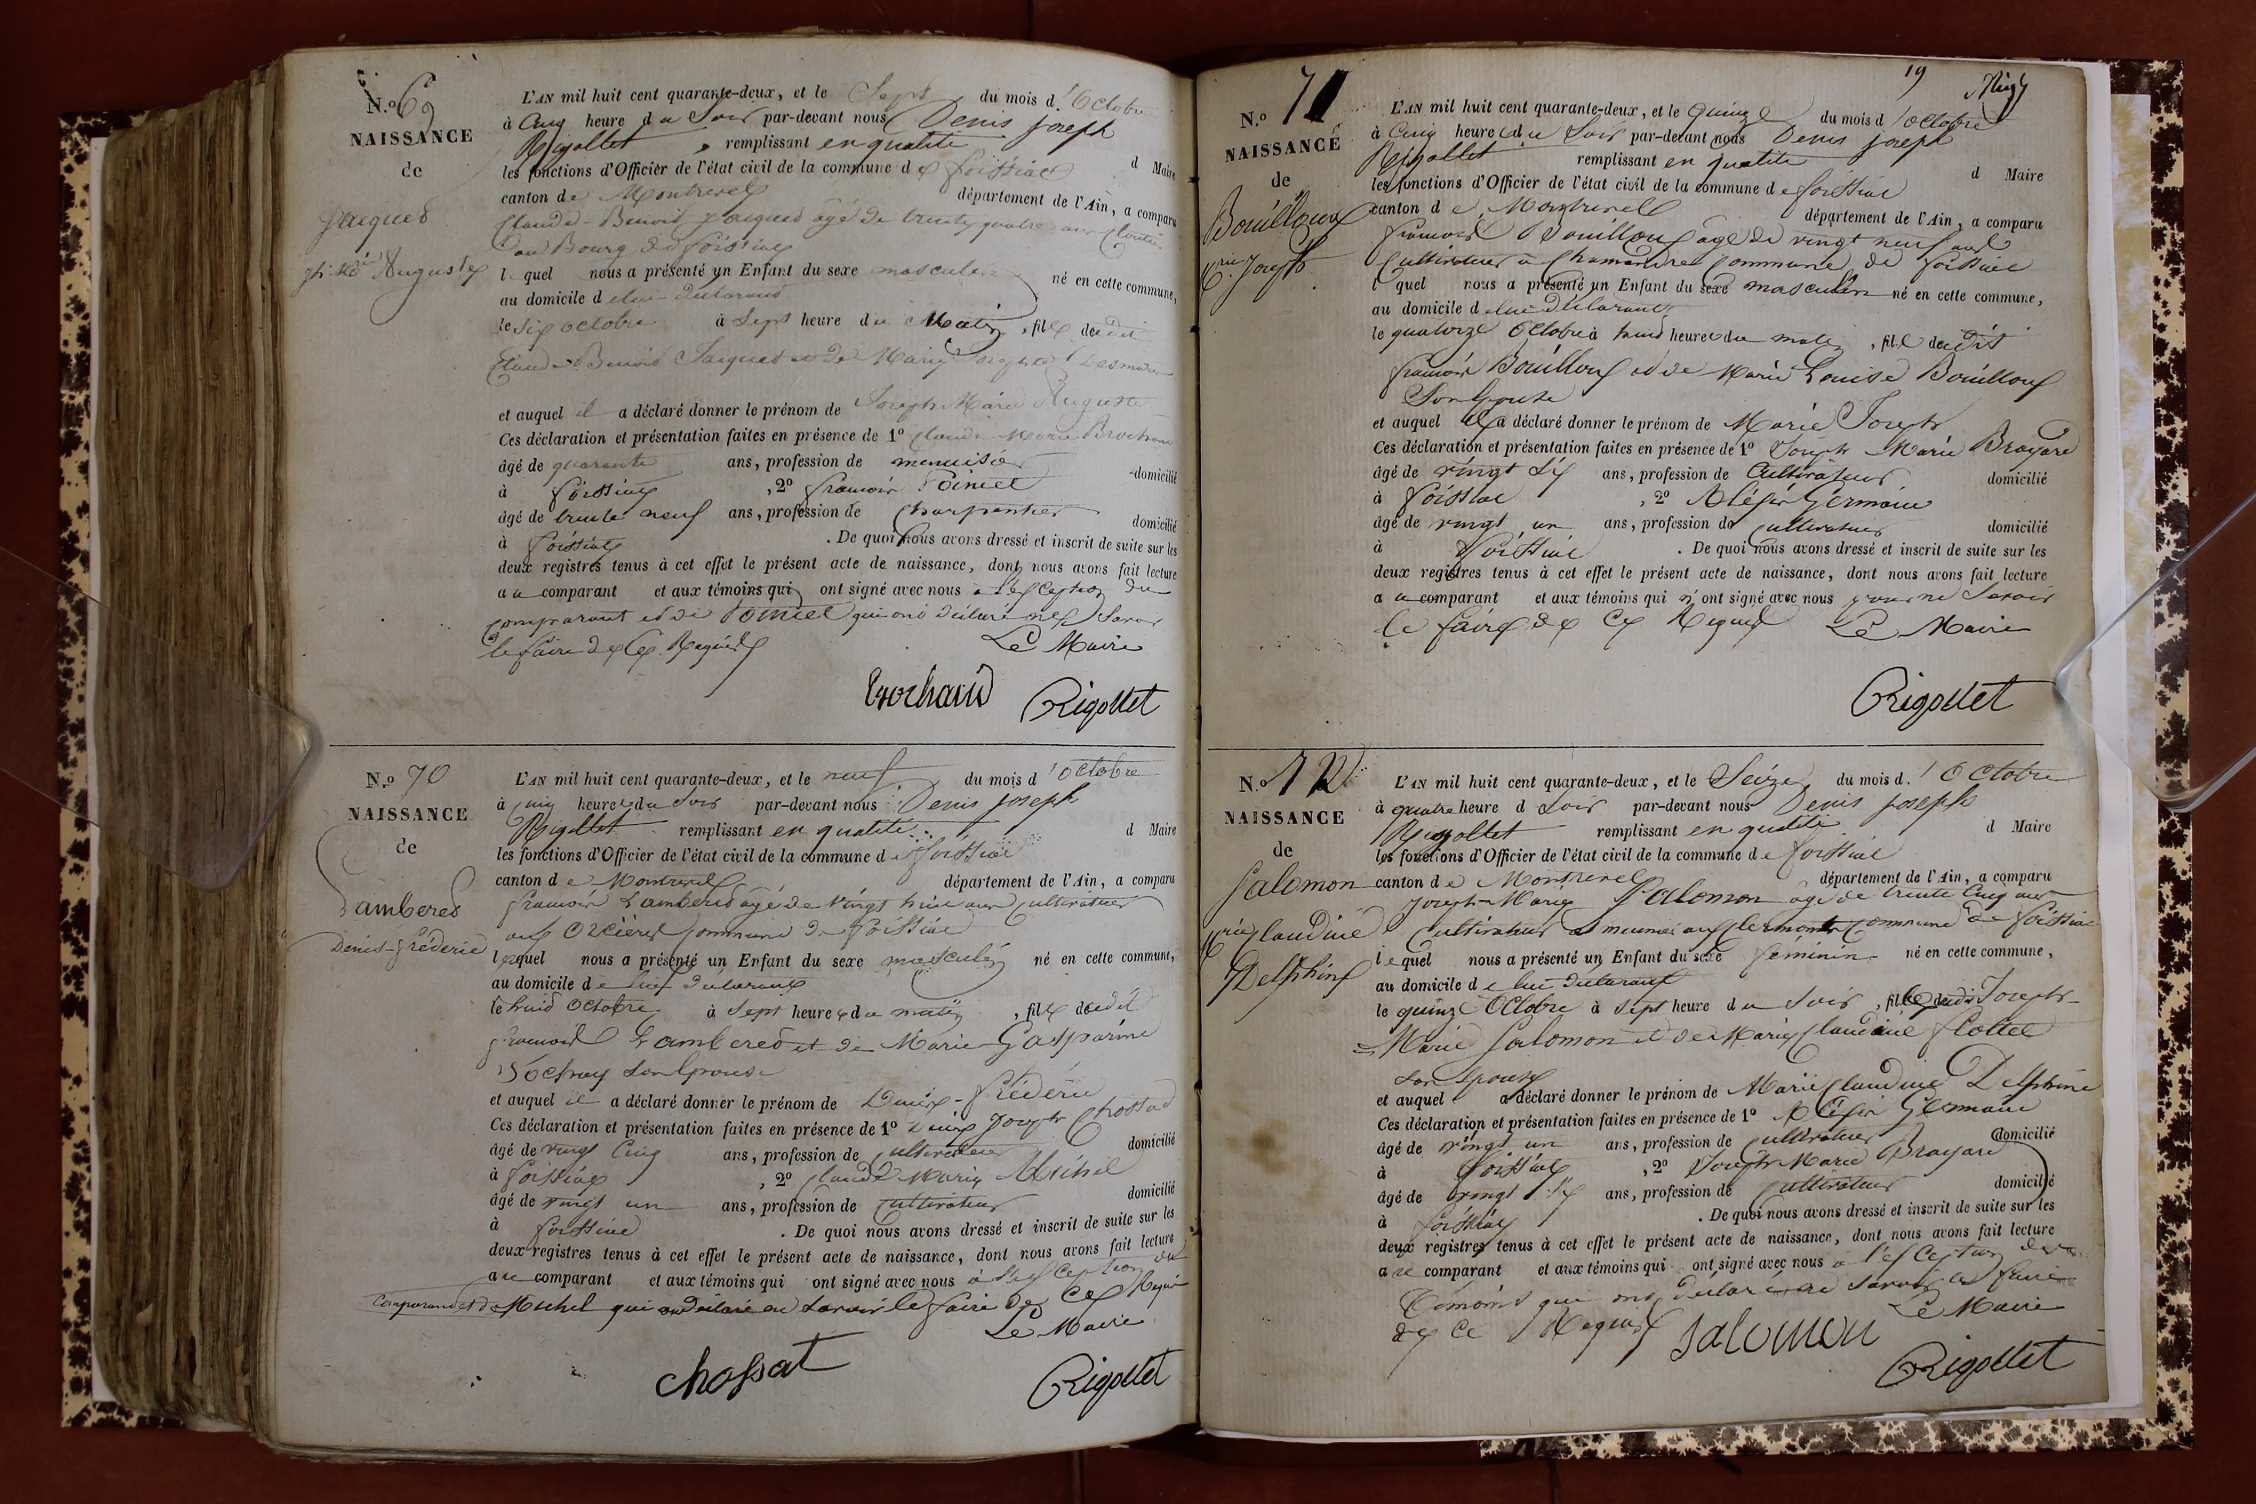 N.º 69
NAISSANCE
de
Jacques
Auguste
L'AN mil huit cent quarante-deux, et le Sept du mois d'Octobre
à Cinq heure du Soir par-devant nous Denis joseph
Rigollet, remplissant en qualité d Maire
les fonctions d'Officier de l'état civil de la commune de foissiat
canton de Montrevel département de l'Ain, a comparu
Claude-Benoit jacques âgé de trente quatre ans
au Bourg de foissiat
lequel nous a présenté un Enfant du sexe masculin né en cette commune,
au domicile de lui déclarant
le Six octobre à Sept heure du Matin, fils dudit
Claude-Benoit Jacques et de Marie
et auquel il a déclaré donner le prénom de Joseph Marie Auguste
Ces déclaration et présentation faites en présence de 1º Claude Marie Brochand
âgé de quarante ans, profession de menuisier domicilié
à foissiat, 2º francois Poncet
âgé de trente neuf ans, profession de Charpentier domicilié
à foissiat. De quoi nous avons dressé et inscrit de suite sur les
deux registres tenus à cet effet le présent acte de naissance, dont nous avons fait lecture
au comparant et aux témoins qui ont signé avec nous à l'exception du
comparant et de Poncet qui ont déclaré ne savoir
le faire de ce Requis Le Maire
Brochand Rigollet
N.º 70
NAISSANCE
de
Lamberet
Denis-frédéric
L'AN mil huit cent quarante-deux, et le neuf du mois d'octobre
à cinq heure du Soir par-devant nous Denis joseph
Rigollet remplissant en qualité d Maire
les fonctions d'Officier de l'état civil de la commune de foissiat
canton de Montrevel département de l'Ain, a comparu
francois Lamberet âgé de vingt huit ans Cultivateur
aux Orcières Commune de foissiat
lequel nous a présenté un Enfant du sexe masculin né en cette commune,
au domicile de lui déclarant
le huit Octobre à Sept heure du matin, fils dudit
francois Lamberet et de Marie Gasparine
Son Epouse
et auquel il a déclaré donner le prénom de Denis-frédéric
Ces déclaration et présentation faites en présence de 1º Denis Joseph Chossat
âgé de vingt Cinq ans, profession de cultivateur domicilié
à foissiat, 2º Claude Marie Michel
âgé de vingt un ans, profession de cultivateur domicilié
à foissiat. De quoi nous avons dressé et inscrit de suite sur les
deux registres tenus à cet effet le présent acte de naissance, dont nous avons fait lecture
au comparant et aux témoins qui ont signé avec nous à l'exception du
comparant et de Michel qui ont déclaré ne savoir le faire de ce Requis
Le Maire
chossat Rigollet
19
N.º 71
NAISSANCE
de
Bouilloux
Mrie Joseph
L'AN mil huit cent quarante-deux, et le Quinze du mois d'octobre
à Cinq heure du Soir par-devant nous Denis joseph
Rigollet remplissant en qualité d Maire
les fonctions d'Officier de l'état civil de la commune de foissiat
canton de Montrevel département de l'Ain, a comparu
francois Bouilloux âgé de vingt neuf ans
Cultivateur à Chamandre Commune de foissiat
lequel nous a présenté un Enfant du sexe masculin né en cette commune,
au domicile de lui déclarant
le quatorze Octobre à huit heure du matin, fils dudit
francois Bouilloux et de Marie Louise Bouilloux
Son Epouse
et auquel il a déclaré donner le prénom de Marie Joseph
Ces déclaration et présentation faites en présence de 1º Joseph Marie Brayard
âgé de vingt Six ans, profession de Cultivateur domicilié
à foissiat, 2º Alexis Germain
âgé de vingt un ans, profession de cultivateur domicilié
à foissiat. De quoi nous avons dressé et inscrit de suite sur les
deux registres tenus à cet effet le présent acte de naissance, dont nous avons fait lecture
au comparant et aux témoins qui n'ont signé avec nous pour ne Savoir
le faire de ce Requis Le Maire
Rigollet
N.º 72
NAISSANCE
de
Salomon
Mrie Claudine
Delphine
L'AN mil huit cent quarante-deux, et le Seize du mois d'Octobre
à quatre heure d Soir par-devant nous Denis joseph
Rigollet remplissant en qualité d Maire
les fonctions d'Officier de l'état civil de la commune de foissiat
canton de Montrevel département de l'Ain, a comparu
Joseph-Marie Salomon âgé de trente Cinq ans
Cultivateur et meunier commune de foissiat
lequel nous a présenté un Enfant du sexe féminin né en cette commune,
au domicile de lui déclarant
le quinze Octobre à sept heure du Soir, fille dudit Joseph
Marie Salomon et de Marie Claudine
son épouse
et auquel a déclaré donner le prénom de Marie Claudine Delphine
Ces déclaration et présentation faites en présence de 1º Alexis Germain
âgé de vingt un ans, profession de cultivateur domicilié
à foissiat, 2º Joseph Marie Brayard
âgé de vingt Six ans, profession de cultivateur domicilié
à foissiat. De quoi nous avons dressé et inscrit de suite sur les
deux registres tenus à cet effet le présent acte de naissance, dont nous avons fait lecture
au comparant et aux témoins qui ont signé avec nous à l'exception des
témoins qui ont déclaré ne savoir le faire
de ce Requis Le Maire
salomon Rigollet